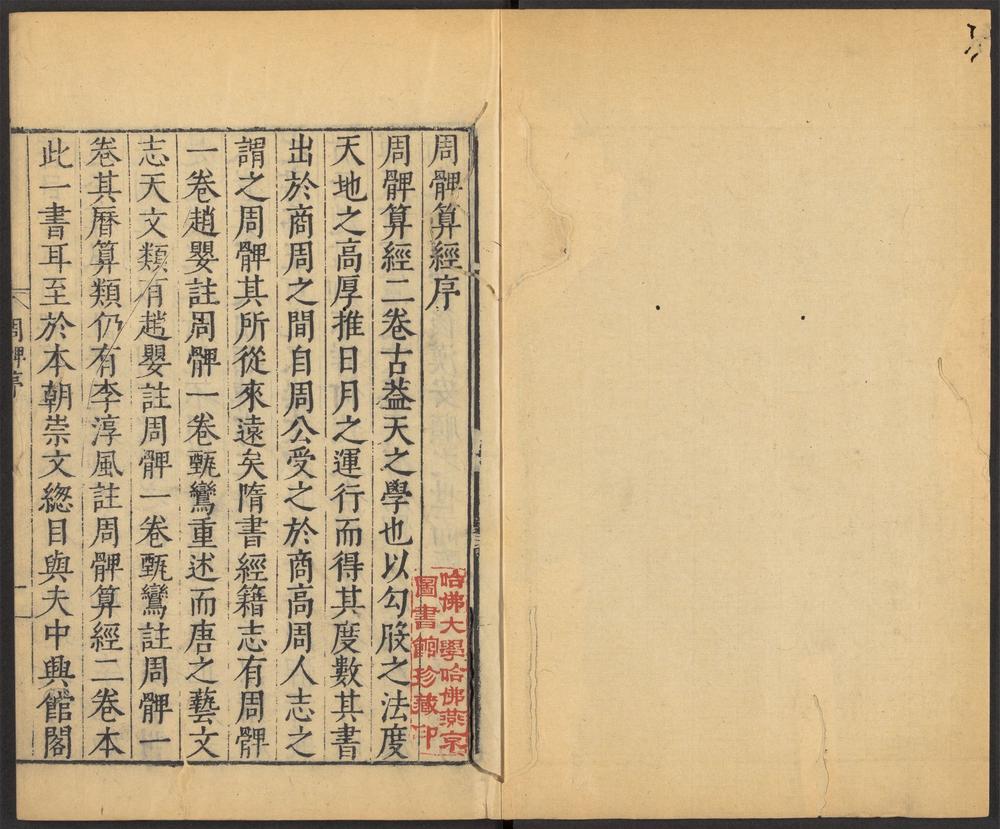 周髀算經序
周髀算經二卷古葢天之學也以勾股之法度
天地之高厚推日月之運行而得其度數其書
出於商周之間自周公受之於商高周人志之
謂之周髀其所從來遠矣隋書經籍志有周髀
一卷趙嬰註周髀一卷甄鸞重述而唐之藝文
志天文類有趙嬰註周髀一卷甄鸞註周髀一
卷其曆算類仍有李淳風註周髀算經二卷本
此一書耳至於本朝崇文緫目與夫中興館閣
周髀序
一
哈佛大學哈佛燕京
圖書館珍藏印